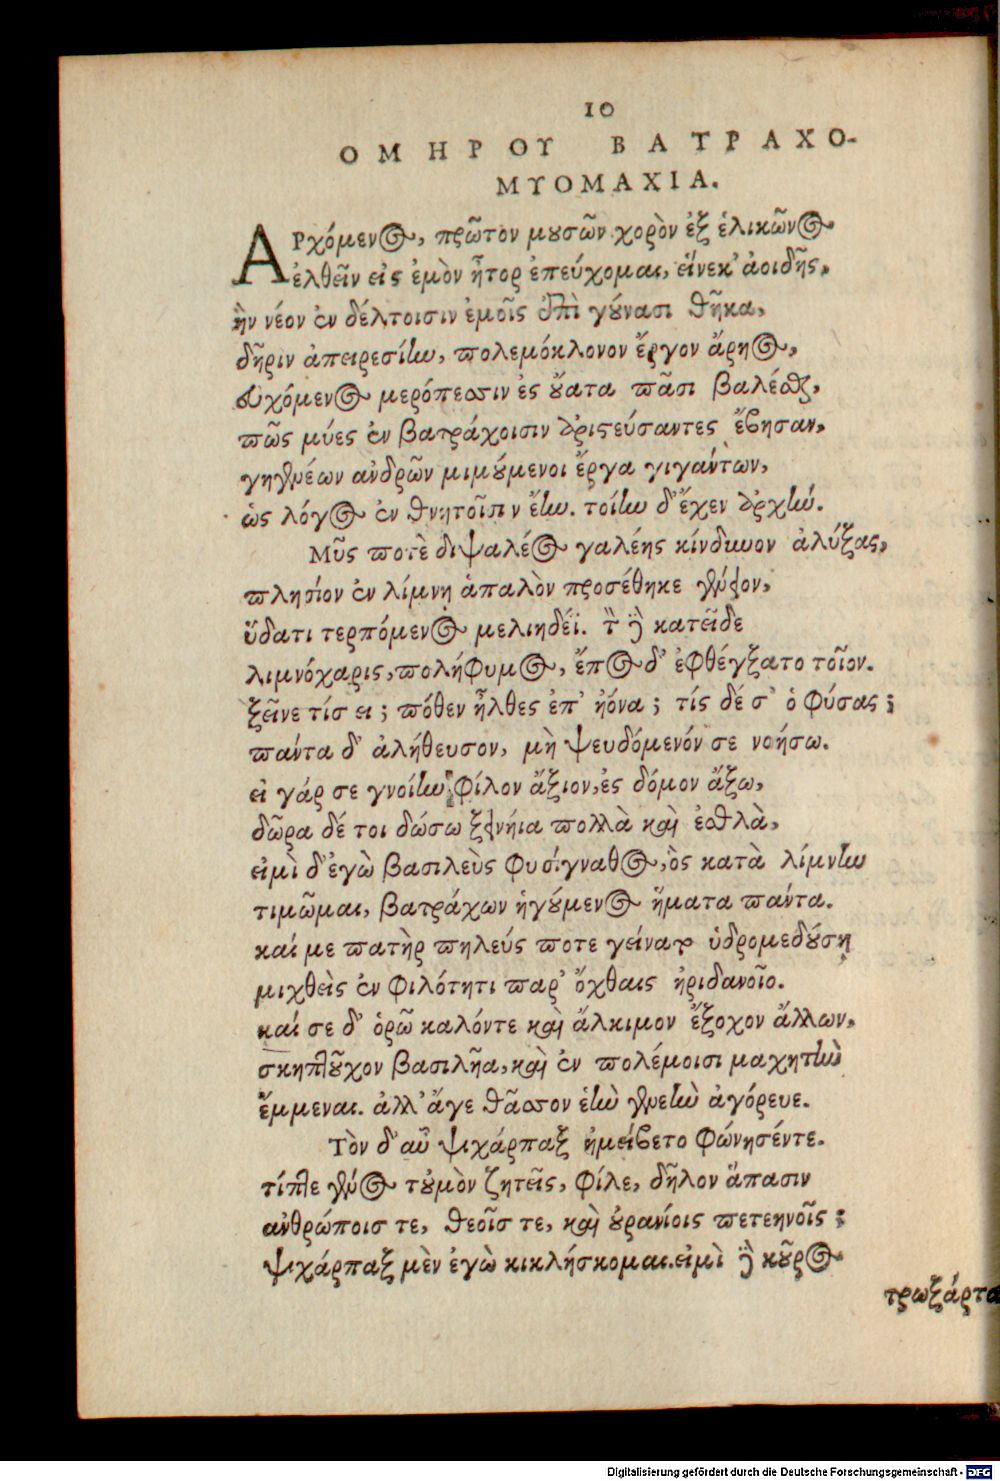 10
ΟΜΗΡΟΥ ΒΑΤΡΑΧΟ-
ΜΥΟΜΑΧΙΑ.
ΑΡχόμενος, πρῶτον μουσῶν χορὸν ἐξ ἑλικῶνος
ἐλθεῖν εἰς ἐμὸν ἦτορ ἐπεύχομαι, εἵνεκ' ἀοιδῆς,
ἣν νέον ἐν δέλτοισιν ἐμοῖς ἐπὶ γούνασι θῆκα,
δῆριν ἀπειρεσίην, πολεμόκλονον ἔργον ἄρηος,
εὐχόμενος μερόπεσσιν ἐς οὔατα πᾶσι βαλέσθαι,
πῶς μύες ἐν βατράχοισιν ἀριστεύσαντες ἔβησαν,
γηγενέων ἀνδρῶν μιμούμενοι ἔργα γιγάντων,
ὡς λόγος ἐν θνητοῖσιν ἔην. τοίην δ' ἔχεν ἀρχήν.
Μῦς ποτὲ διψαλέος γαλέης κίνδυνον ἀλύξας,
πλησίον ἐν λίμνῃ ἁπαλὸν προσέθηκε γένειον,
ὕδατι τερπόμενος μελιηδέϊ. τὸν δὲ κατεῖδε
λιμνόχαρις, πολύφυμος, ἔπος δ' ἐφθέγξατο τοῖον.
ξεῖνε τίς εἶ; πόθεν ἦλθες ἐπ' ἠόνα; τίς δέ σ' ὁ φύσας;
πάντα δ' ἀλήθευσον, μὴ ψευδόμενόν σε νοήσω.
εἰ γάρ σε γνοίην φίλον ἄξιον, ἐς δόμον ἄξω,
δῶρα δέ τοι δώσω ξεινήια πολλὰ καὶ ἐσθλὰ,
εἰμὶ δ' ἐγὼ βασιλεὺς φυσίγναθος, ὃς κατὰ λίμνην
τιμῶμαι, βατράχων ἡγούμενος ἤματα πάντα.
καί με πατὴρ πηλεύς ποτε γείνατο ὑδρομεδούσῃ
μιχθεὶς ἐν φιλότητι παρ' ὄχθαις ἠριδανοῖο.
καί σε δ' ὁρῶ καλόντε καὶ ἄλκιμον ἔξοχον ἄλλων,
σκηπτοῦχον βασιλῆα, καὶ ἐν πολέμοισι μαχητὴν
ἔμμεναι. ἀλλ' ἄγε θᾶσσον ἑὴν γενεὴν ἀγόρευε.
Τὸν δ' αὖ ψιχάρπαξ ἠμείβετο φώνησέντε.
τίπτε γένος τοὐμὸν ζητεῖς, φίλε, δῆλον ἅπασιν
ἀνθρώποισ τε, θεοῖσ τε, καὶ οὐρανίοις πετεηνοῖς;
ψιχάρπαξ μὲν ἐγὼ κικλήσκομαι. εἰμὶ δὲ κοῦρος
τρωξάρτα
Digitalisierung gefördert durch die Deutsche Forschungsgemeinschaft - DFG